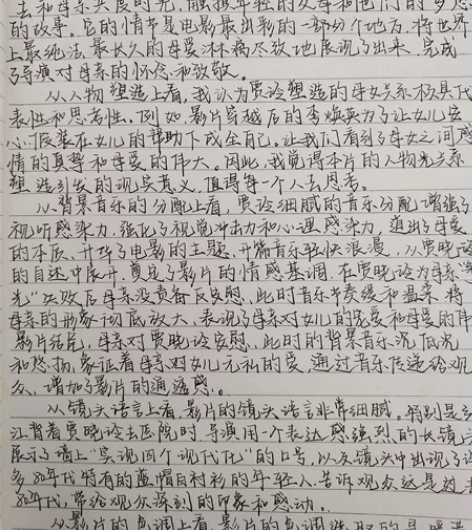 去和母亲共度时光,触摸年轻的父母和他们的梦想
的故事。它的情节是电影最出彩的一部分个地方,将世界
上最纯洁最长久的母爱淋漓尽致地展现了出来,完成
了导演对母亲的怀念和致敬。
从人物塑造上看,我认为贾玲塑造的母女关系极具代
表性和思考性。例如影片穿越后的李焕英为了让女儿安
心,假装在女儿的帮助下成全自己。让我们看到了母女之间感
情的真挚和母爱的伟大。因此,我觉得本片的人物关系
塑造引发的现实意义,值得每一个人去思考。
从背景音乐的分配上看,贾玲细腻的音乐分配增强了
视听感染力,强化了视觉冲击力和心理感染力,道出了母爱
的本质,升华了电影的主题,开篇音乐轻快浪漫,从贾晓玲
的自述中展开,奠定了影片的情感基调。在贾晓玲为母亲"
光"失败后母亲没责备反安慰,此时音乐节奏缓和温柔,将
母亲的形象彻底放大,表现了母亲对女儿的宠爱和母爱的伟
影片结尾,母亲对贾晓玲安慰,此时的背景音乐沉低沉
和悠扬,象征着母亲对女儿无私的爱,通过音乐传递给观
众,增加了影片的通透感。
从镜头语言上看,影片的镜头语言非常细腻。特别是
江背着贾晓玲去医院时,导演用一个表达感强烈的长镜
展示了墙上"实现四个现代化"的口号,以及镜头中出现了
多80年代特有的蓝帽白衬衫的年轻人,告诉观众这是过去
80年代,带给观众深刻的印象和感动。
从影片的色调上看,影片的色调